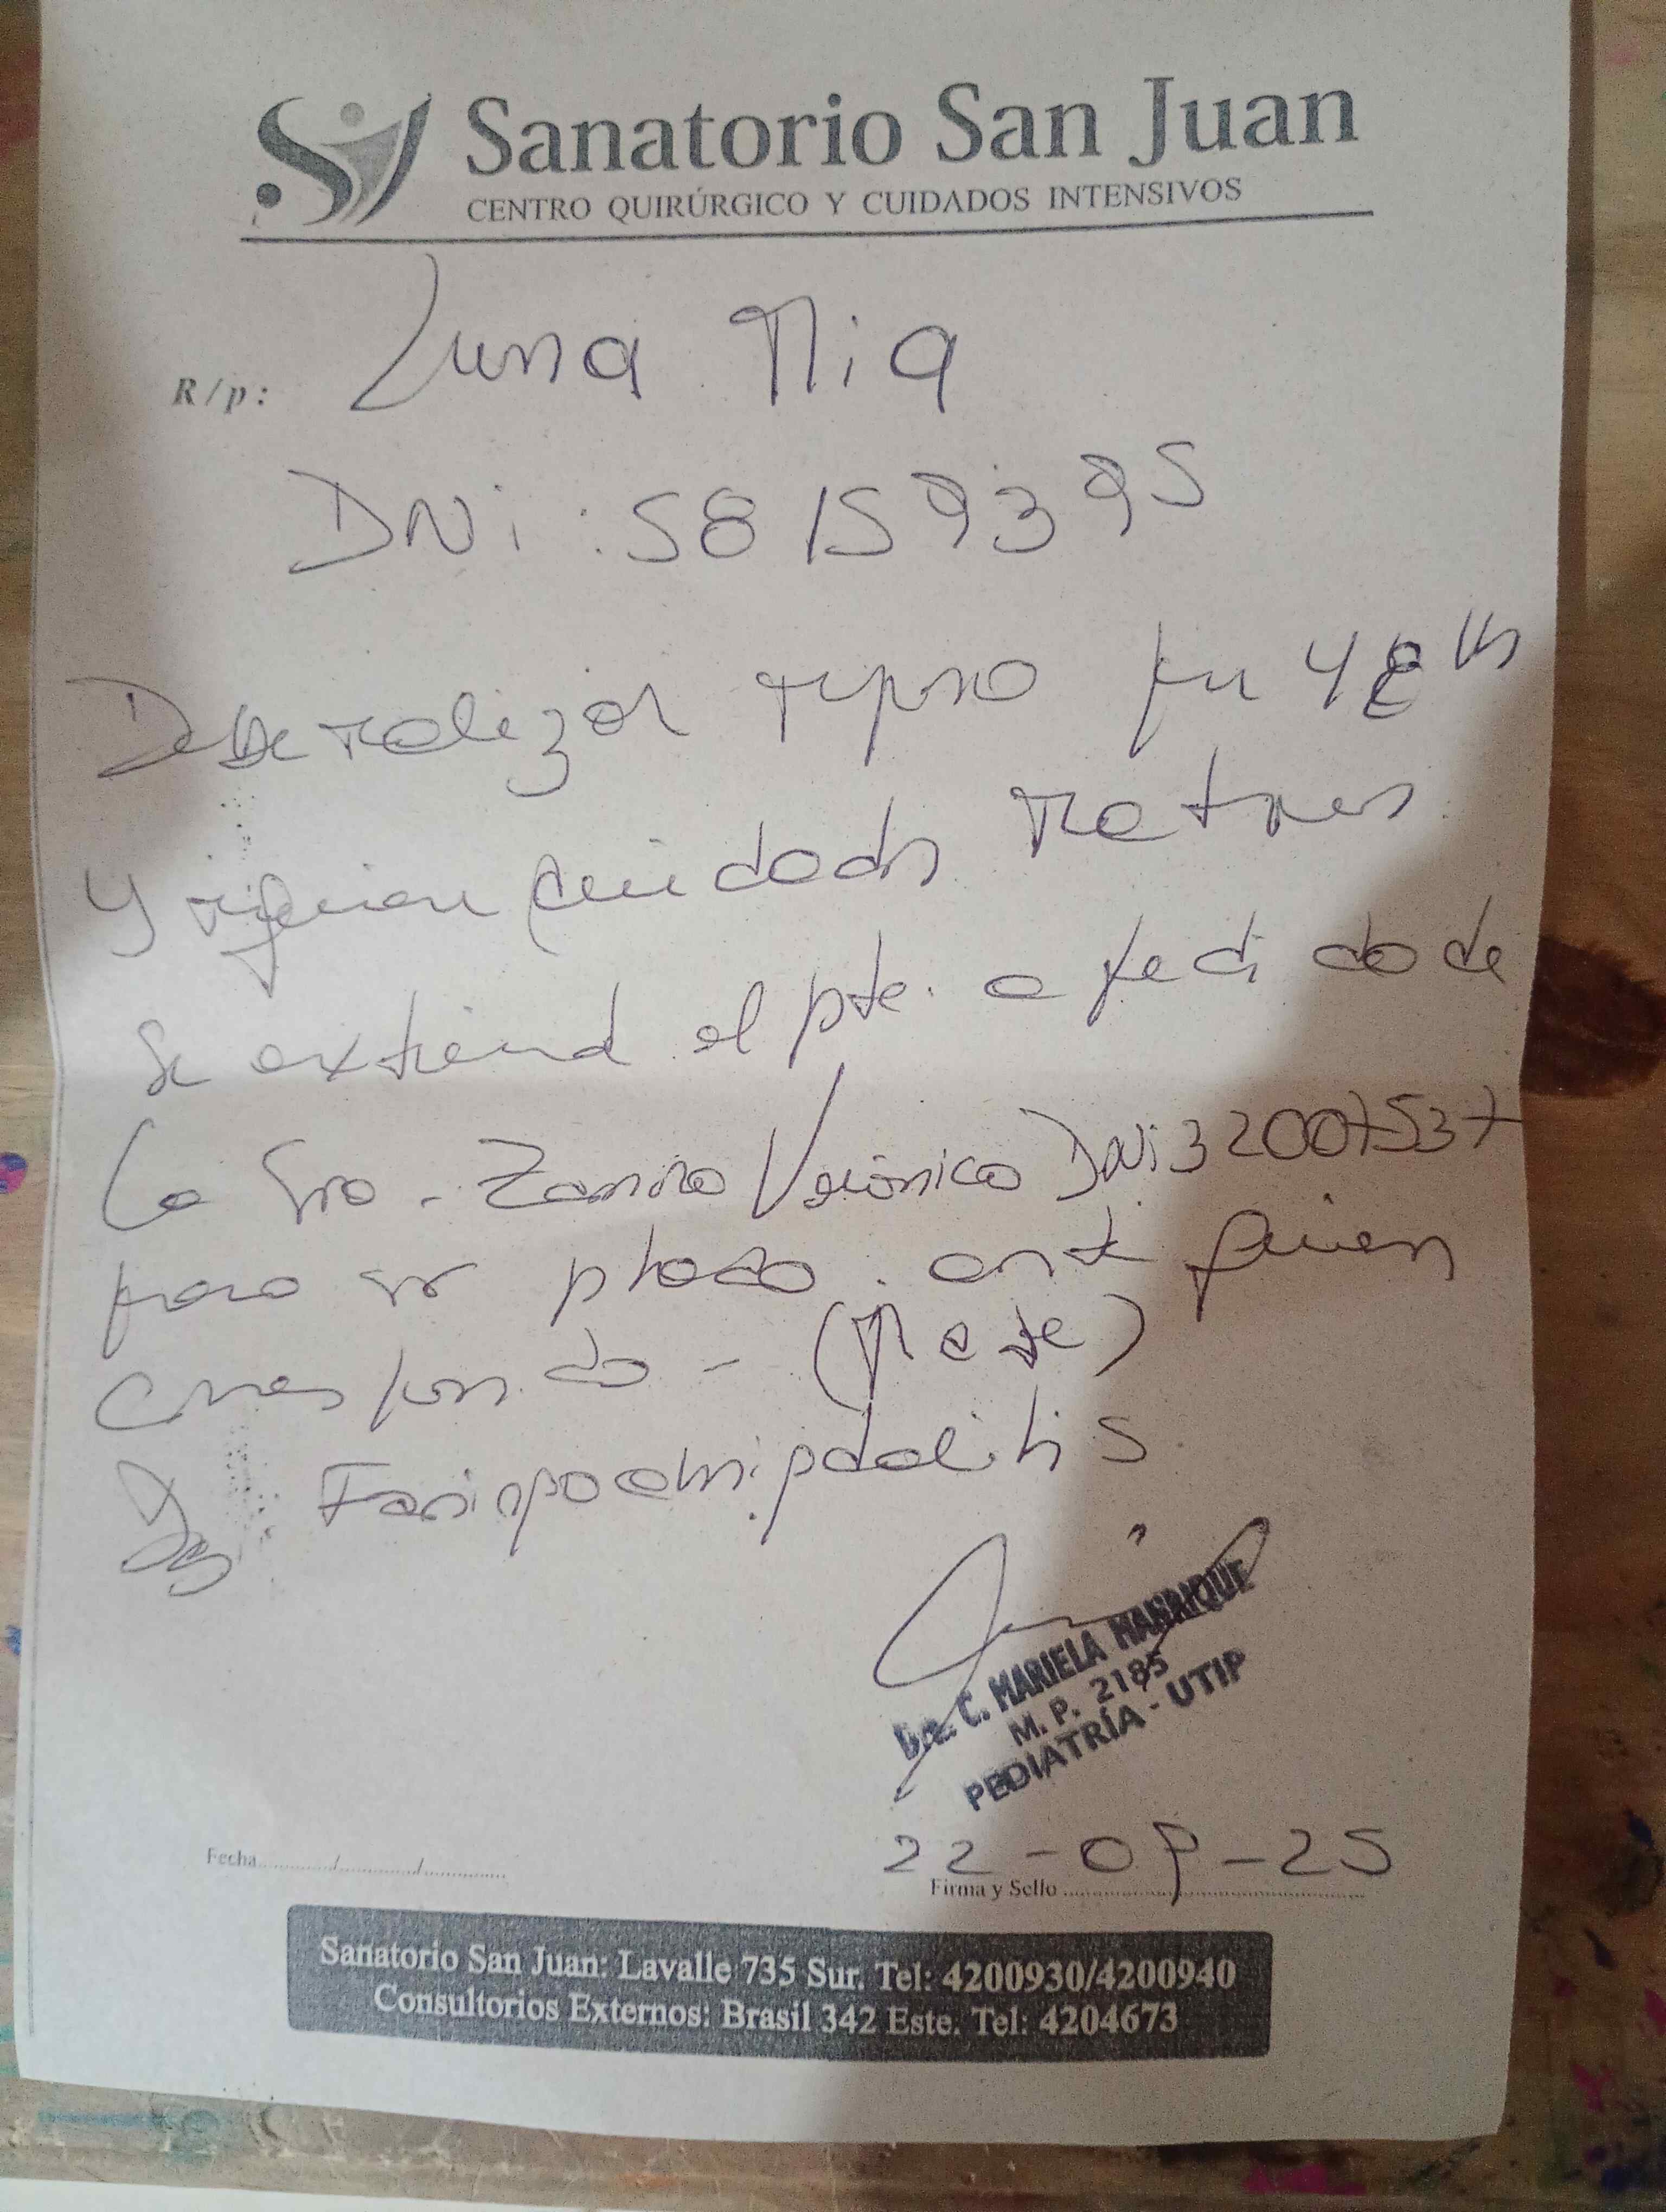 Sanatorio San Juan
CENTRO QUIRÚRGICO Y CUIDADOS INTENSIVOS
R/p: Luna Mia
DNi: 58159395
Debe realizar reposo por 48 hs
y requiere cuidados maternos
Se extiend el pte. a pedido de
la Sra. Zamira Verónica DNi 32007537
para ser pttado ante quien
corresponda - (Madre)
Dg Faringoamigdalitis
Dra. C. MARIELA MANRIQUE
M. P. 2185
PEDIATRÍA - UTIP
22-09-25
Fecha ............/............/............
Firma y Sello
Sanatorio San Juan: Lavalle 735 Sur. Tel: 4200930/4200940
Consultorios Externos: Brasil 342 Este. Tel: 4204673